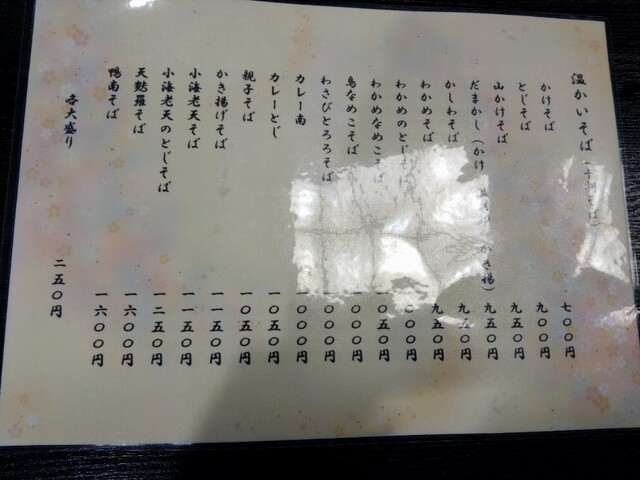 温かいそば(十割そば)
かけそば 七〇〇円
とじそば 九〇〇円
山かけそば 九五〇円
だまかし(かけ かき揚) 九五〇円
かしわそば 九五〇円
わかめそば 九五〇円
わかめのとじそば 一〇〇〇円
わかめなめこそば 一〇五〇円
鳥なめこそば 一〇〇〇円
わさびとろろそば 一〇〇〇円
カレー南 一〇〇〇円
カレーとじ 一〇五〇円
親子そば 一〇五〇円
かき揚げそば 一一五〇円
小海老天そば 一一五〇円
小海老天のとじそば 一二五〇円
天麩羅そば 一六〇〇円
鴨南そば 一六〇〇円
各大盛り 二五〇円